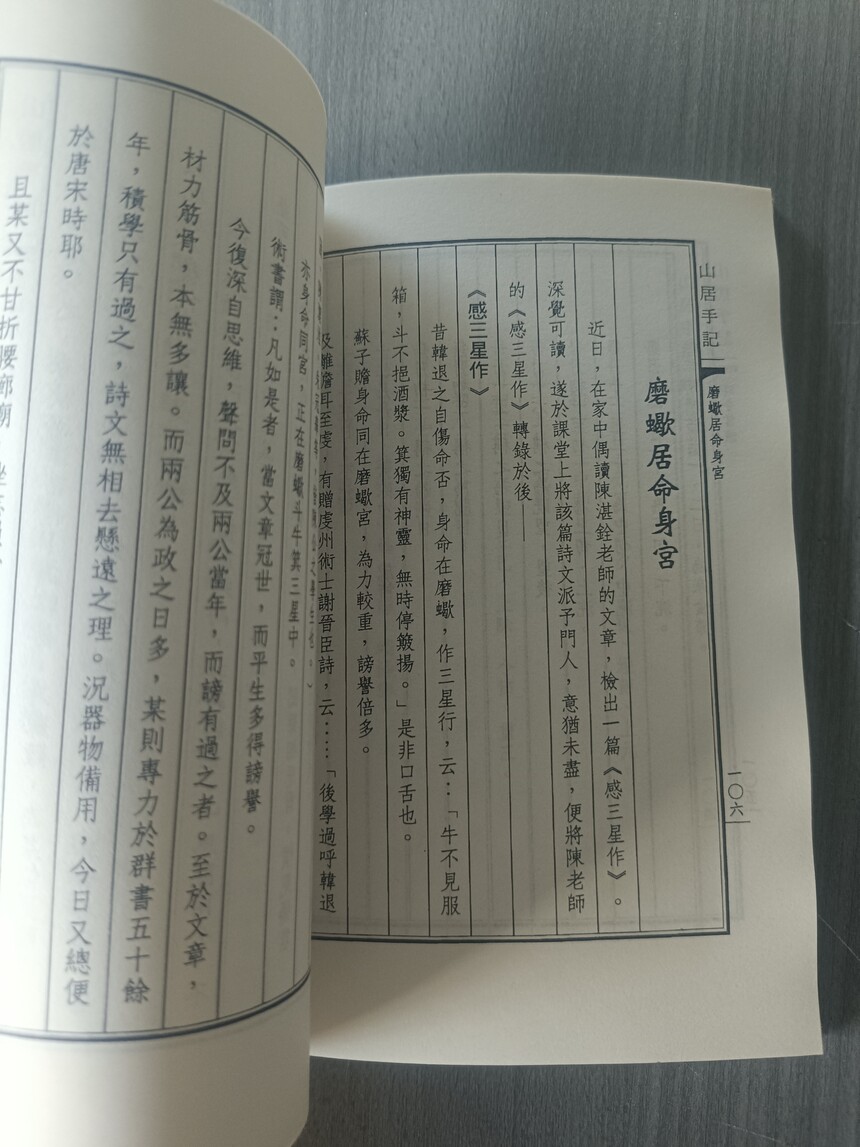 山居手記
磨蠍居命身宮
一〇六
磨蠍居命身宮
近日，在家中偶讀陳湛銓老師的文章，檢出一篇《感三星作》。
深覺可讀，遂於課堂上將該篇詩文派予門人，意猶未盡，便將陳老師
的《感三星作》轉錄於後——
《感三星作》
昔韓退之自傷命否，身命在磨蠍，作三星行，云：「牛不見服
箱，斗不挹酒漿。箕獨有神靈，無時停簸揚。」是非口舌也。
蘇子瞻身命同在磨蠍宮，為力較重，謗譽倍多。
及離儋耳至虔，有贈虔州術士謝晉臣詩，云：……「後學過呼韓退
亦身命同宮，正在磨蠍斗牛箕三星中。
術書謂：凡如是者，當文章冠世，而平生多得謗譽。
今復深自思維，聲問不及兩公當年，而謗有過之者。至於文章，
材力筋骨，本無多讓。而兩公為政之日多，某則專力於群書五十餘
年，積學只有過之，詩文無相去懸遠之理。況器物備用，今日又總便
於唐宋時耶。
且某又不甘折腰